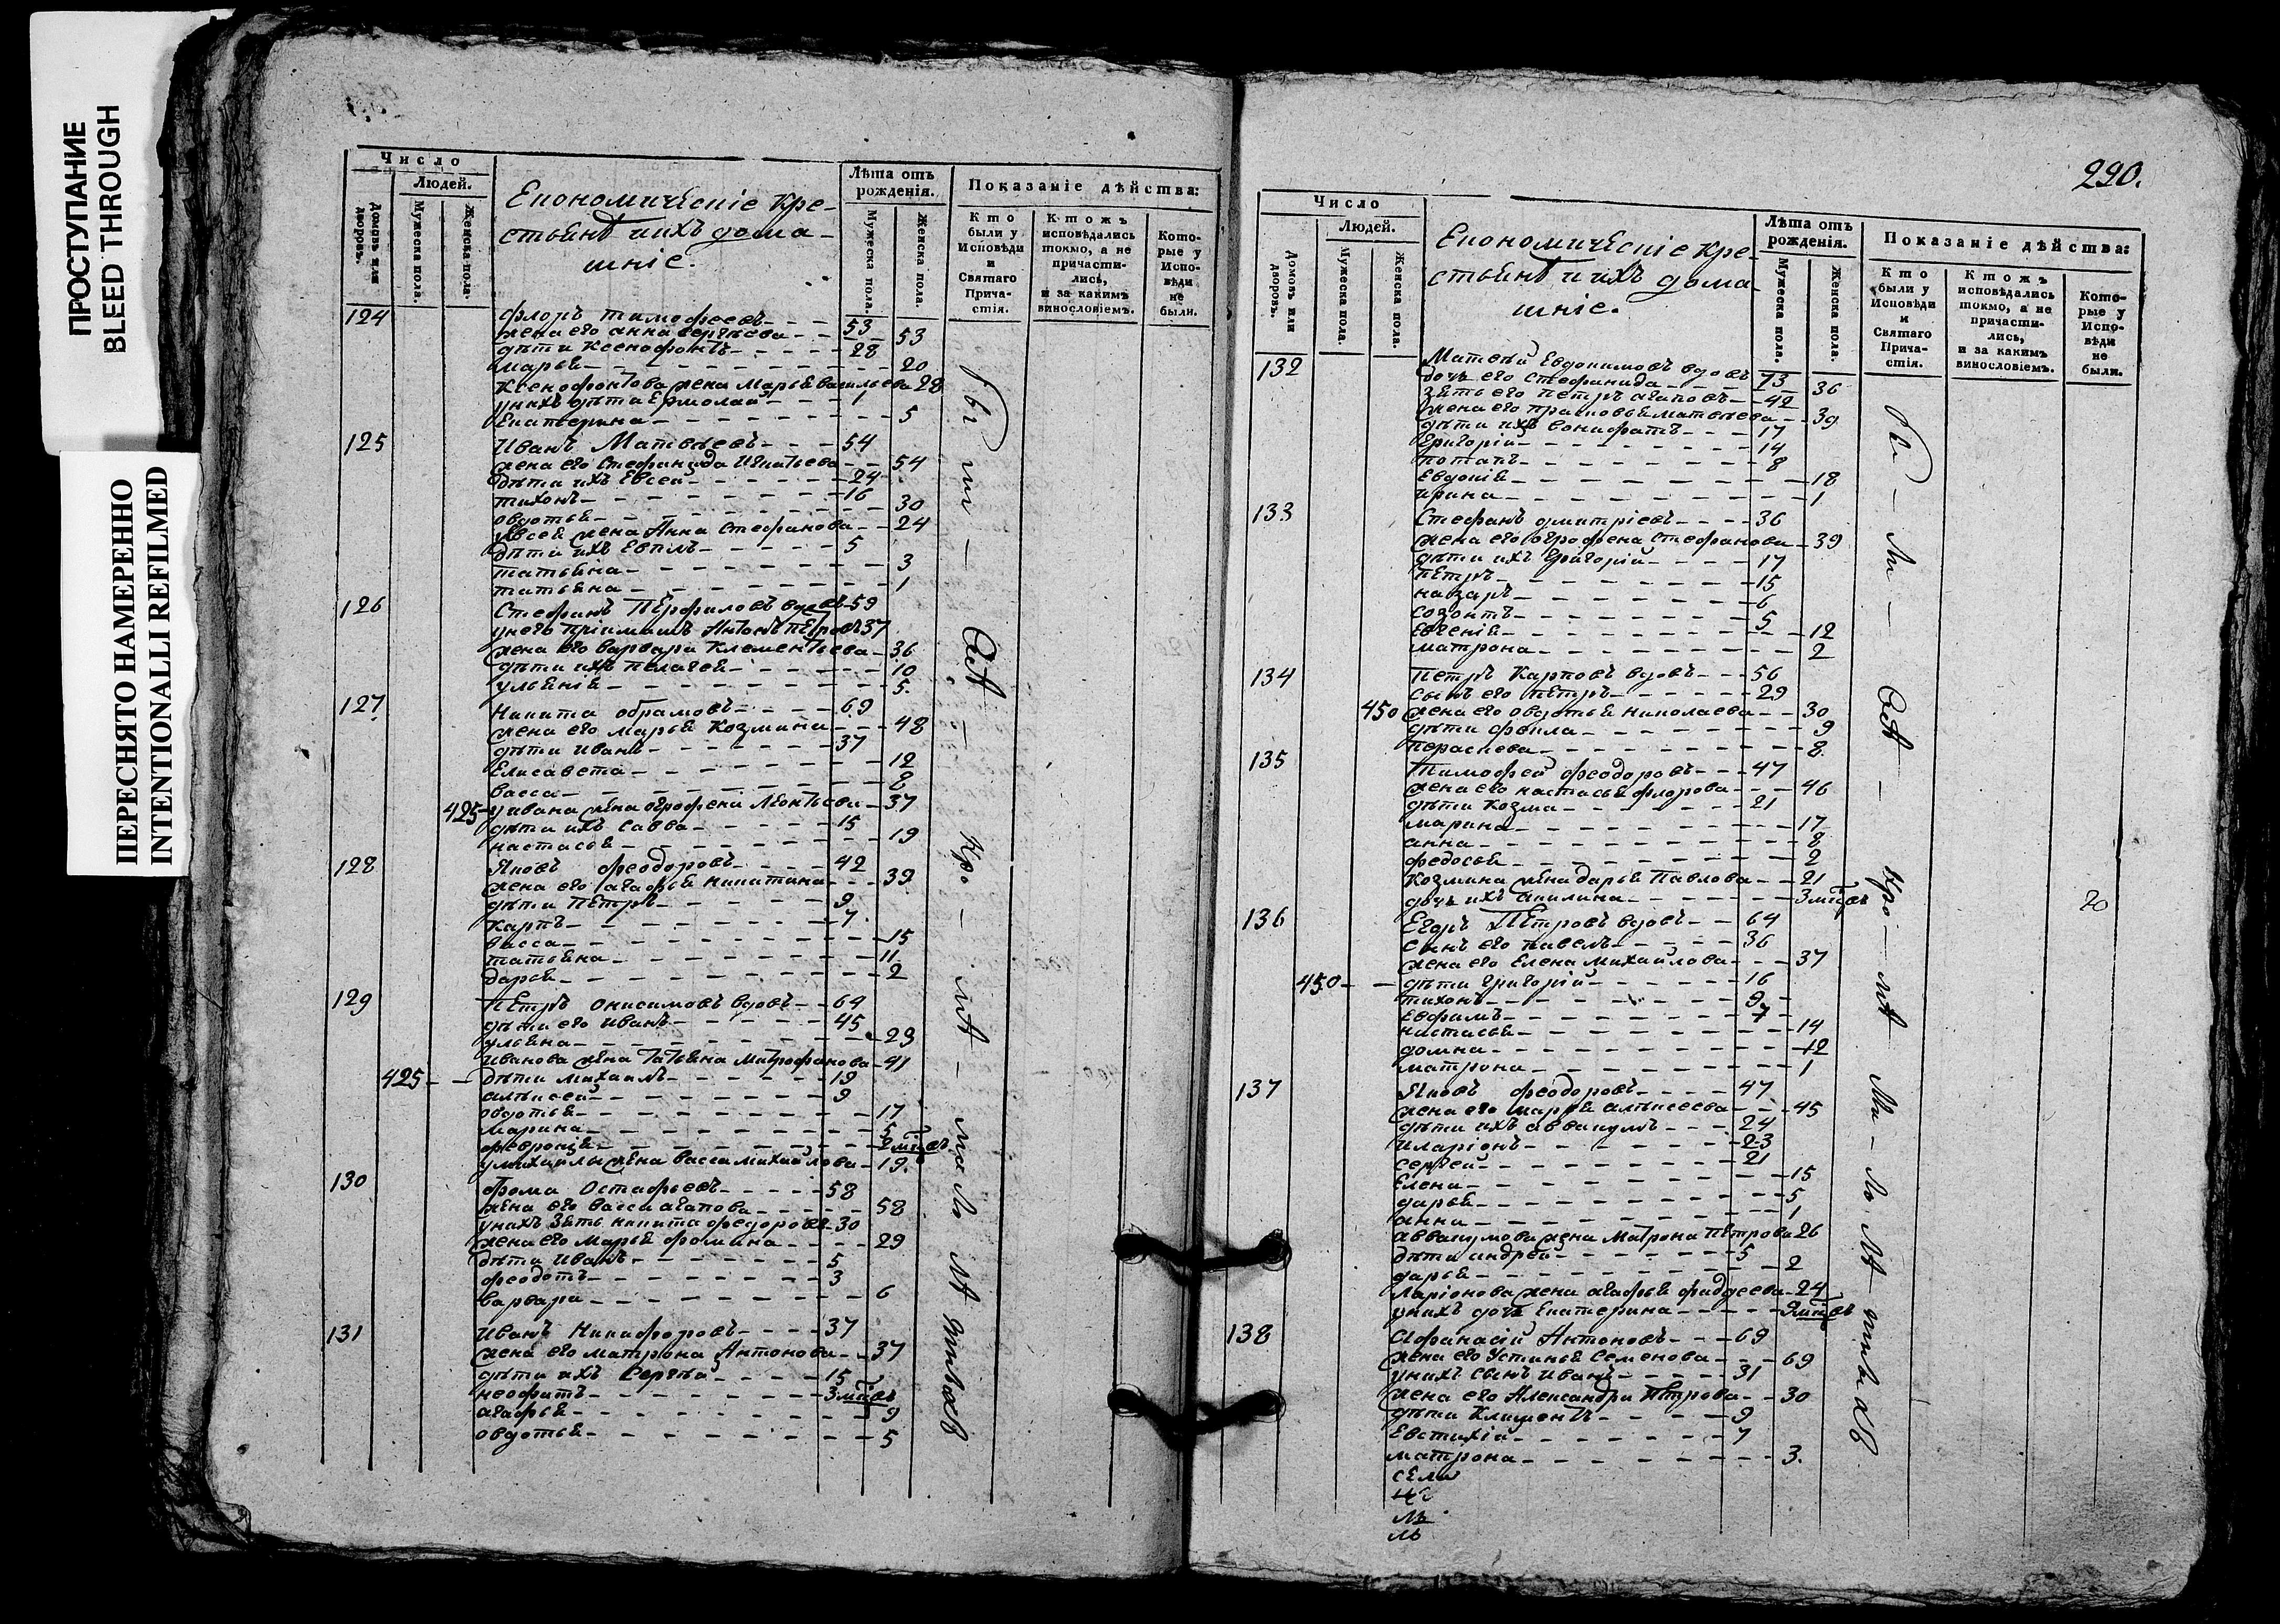 ПРОСТУПАНИЕ
BLEED THROUGH
ПЕРЕСНЯТО НАМЕРЕННО
INTENTIONALLI REFILMED
Число
Людей.
Домовъ или дворовъ.
Мужеска пола.
Женска пола.
Економическіе кре-
стьянѣ и ихъ дома-
шніе.
Лѣта отъ рожденія.
Мужеска пола.
Женска пола.
Показаніе дѣйства:
Кто были у Исповѣди и Святаго Прича-стія.
Ктожъ исповѣдались токмо, а не причасти-лись, и за какимъ винословіемъ.
Кото-рые у Испо-вѣди не были.
124 Флоръ Тимофеевъ 53
жена его анна Сергѣева 53
дѣти Ксенофонтъ 28
марья 20
Ксенофонтова жена Марья Васильева 28
у нихъ дѣти Ермолай 1
Екатерина 5
125 Иванъ Матвѣевъ 54
жена его Стефанида Игнатьева 54
дѣти ихъ Евсей 24
тихонъ 16
овдотья 30
жена Анна Стефанова 24
дѣти ихъ Евпилъ 5
татьяна 3
татьяна 1
126 Стефанъ Перфиловъ вдовъ 59
у него пріимышъ Антонъ Петровъ 37
жена его варвара Клементьева 36
дѣти ихъ пелагея 10
ульянія 5
127 Никита обрамовъ 69
жена его марья Козмина 48
дѣти иванъ 37
Елисавета 12
васса 8
425 у ивана жена огрофена Леонтьева 37
дѣти ихъ Савва 15
настасья 19
128 Яковъ феодоровъ 42
жена его агафья никитина 39
дѣти Петръ 9
карпъ 7
васса 15
татьяна 11
дарья 2
129 Петръ онисимовъ вдовъ 64
дѣти его иванъ 45
ульяна 29
иванова жена Татьяна Митрофанова 41
425 дѣти михаилъ 19
алѣксей 9
овдотья 17
марина 5
февронія 2 мѣсяц
у михаилы жена васса михайлова 19
130 Фома Остафьевъ 58
жена его васса агапова 58
у нихъ зять никита федоровъ 30
жена его Марья фомина 29
дѣти иванъ 5
феодотъ 3
варвара 6
131 Иванъ Никифоровъ 37
жена его матрона Антонова 37
дѣти ихъ Сергѣй 15
неофитъ 3 мѣсяц
агафья 9
овдотья 5
220.
Число
Людей.
Домовъ или дворовъ.
Мужеска пола.
Женска пола.
Економическіе кре-
стьянѣ и ихъ дома-
шніе.
Лѣта отъ рожденія.
Мужеска пола.
Женска пола.
Показаніе дѣйства:
Кто были у Исповѣди и Святаго Прича-стія.
Ктожъ исповѣдались токмо, а не причасти-лись, и за какимъ винословіемъ.
Кото-рые у Испо-вѣди не были.
132 Матвѣй Евдокимовъ вдовъ 73
дочь его Стефанида 36
зять его петръ агаповъ 42
жена его прасковья матвѣева 39
дѣти ихъ 17
Григорій 14
потапъ 8
Евдокія 18
ирина 1
133 Стефанъ дмитріевъ 36
жена его огрофена стефанова 39
дѣти ихъ Григорій 17
петръ 15
назаръ 6
созонтъ 5
Евгенія 12
матрона 2
134 Петръ Карповъ вдовъ 56
сынъ его петръ 29
450 жена его овдотья николаева 30
дѣти фекла 9
параскева 8
135 Тимофей феодоровъ 47
жена его настасья флорова 46
дѣти козма 21
марина 17
анна 8
федосья 2
козмина жена дарья Павлова 21
дочь ихъ акилина 3 мѣсяц
20
136 Егоръ Петровъ вдовъ 64
сынъ его павелъ 36
жена его Елена михайлова 37
450 дѣти Григорій 16
тихонъ 9
Евфимъ 7
настасья 14
домна 12
матрона 1
137 Яковъ феодоровъ 47
жена его марья алѣксеева 45
дѣти ихъ аввакумъ 24
иларіонъ 23
сергей 21
Елена 15
дарья 5
анна 1
аввакумова жена Матрона Петрова 26
дѣти андрей 5
дарья 2
ларіонова жена агафья фаддеева 24
у нихъ дочь Екатерина 9 мѣсяц
138 Афанасій Антоновъ 69
жена его Устинья Семенова 69
у нихъ сынъ иванъ 31
жена его Александра Петрова 30
дѣти Климентъ 9
Евстихій 7
матрона 3